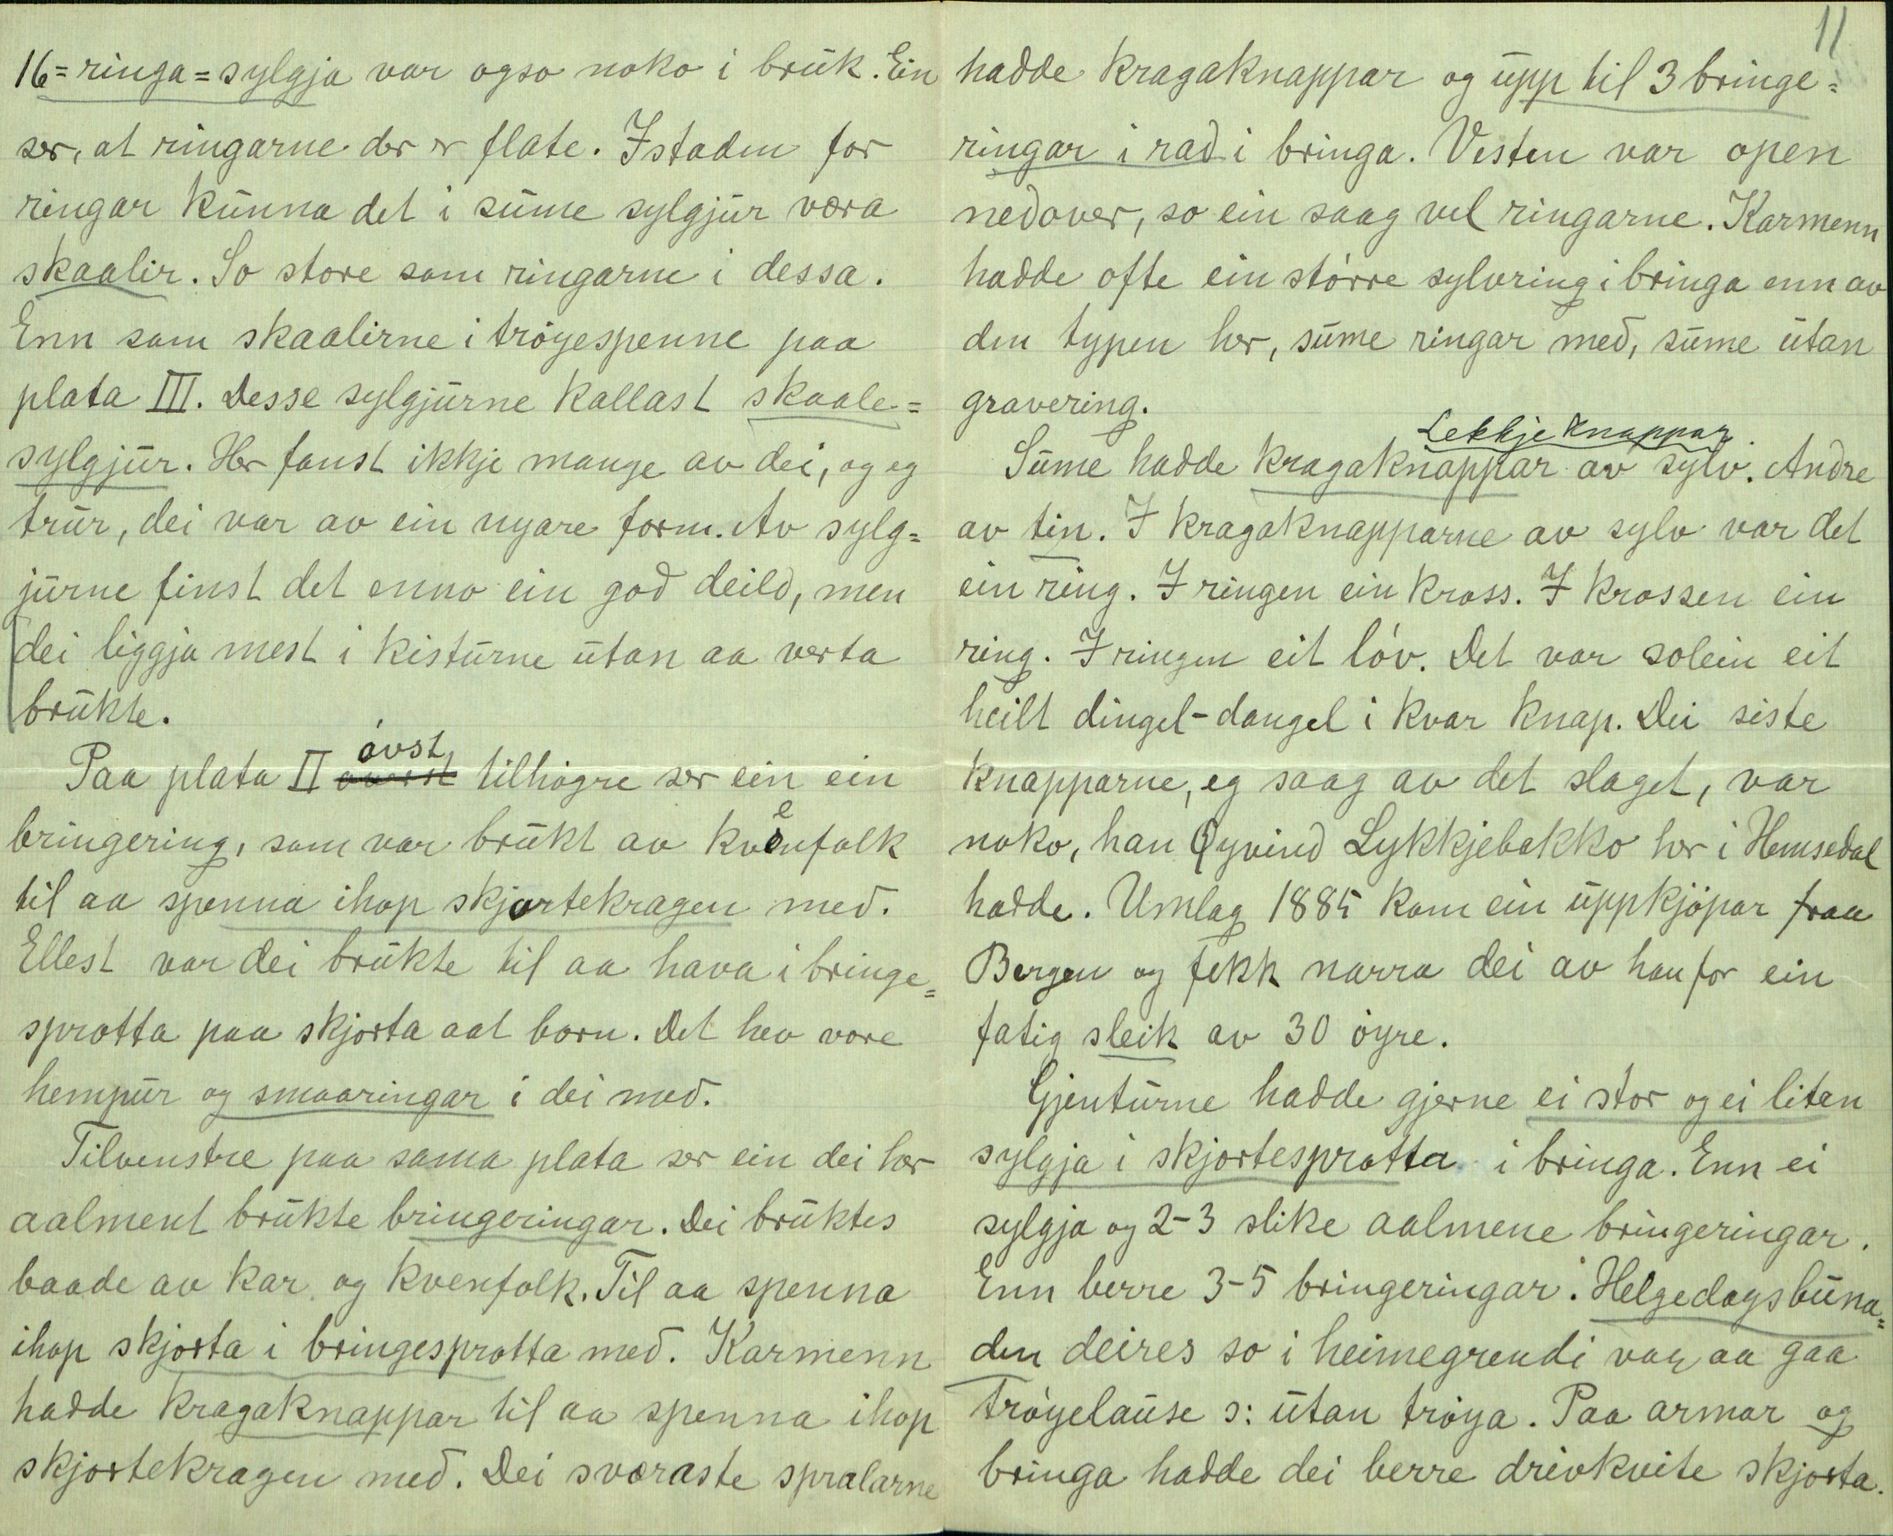 16=ringa=sylgja var ogso noko i bruk. Ein
ser, at ringarne der er flate. Istaden for
ringar kunna det i sume sylgjur væra
skaalir. So store som ringarne i dessa.
Enn som skaalirne i trøyespenne paa
plata III. Desse sylgjurne kallast skaale=
sylgjur. Her fanst ikkje mange av dei, og eg
trur, dei var av ein nyare form. Av sylg=
jurne finst det enno ein god deild, men
dei liggja mest i kisturne utan aa verta
brukte.
Paa plata II øvst tilhøgre ser ein ein
bringering, som var brukt av kvenfolk
til aa spenna ihop skjortekragen med.
Ellest var dei brukte til aa hava i bringe=
sprotta paa skjorta aat born. Det hev vore
hempur og smaaringar i dei med.
Tilvenstre paa sama plata ser ein dei her
aalment brukte bringeringar. Dei bruktes
baade av kar og kvenfolk. Til aa spenna
ihop skjorta i bringesprotta med. Karmenn
hadde kragaknappar til aa spenna ihop
skjortekragen med. Dei sværaste spralarne
11
hadde kragaknappar og upp til 3 bringe=
ringar i rad i bringa. Vesten var open
nedover, so ein saag vel ringarne. Karmenn
hadde ofte ein større sylvring i bringa enn av
den typen her, sume ringar med, sume utan
gravering.
Lekkjeknappar
Sume hadde kragaknappar av sylv. Andre
av tin. I kragaknapparne av sylv var det
ein ring. I ringen ein kross. I krossen ein
ring. I ringen eit løv. Det var solein eit
heilt dingel-dangel i kvar knap. Dei siste
knapparne, eg saag av det slaget, var
noko, han Øyvind Lykkjebakko her i Hemsedal
hadde. Umlag 1885 kom ein uppkjøpar fraa
Bergen og fekk narra dei av han for ein
fatig sleik av 30 øyre.
Gjenturne hadde gjerne ei stor og ei liten
sylgja i skjortesprotta i bringa. Enn ei
sylgja og 2-3 slike aalmene bringeringar.
Enn berre 3-5 bringeringar. Helgedagsbuna=
den deires so i heimegrendi var aa gaa
trøyelause ɔ: utan trøya. Paa armar og
bringa hadde dei berre drivkvite skjorta.